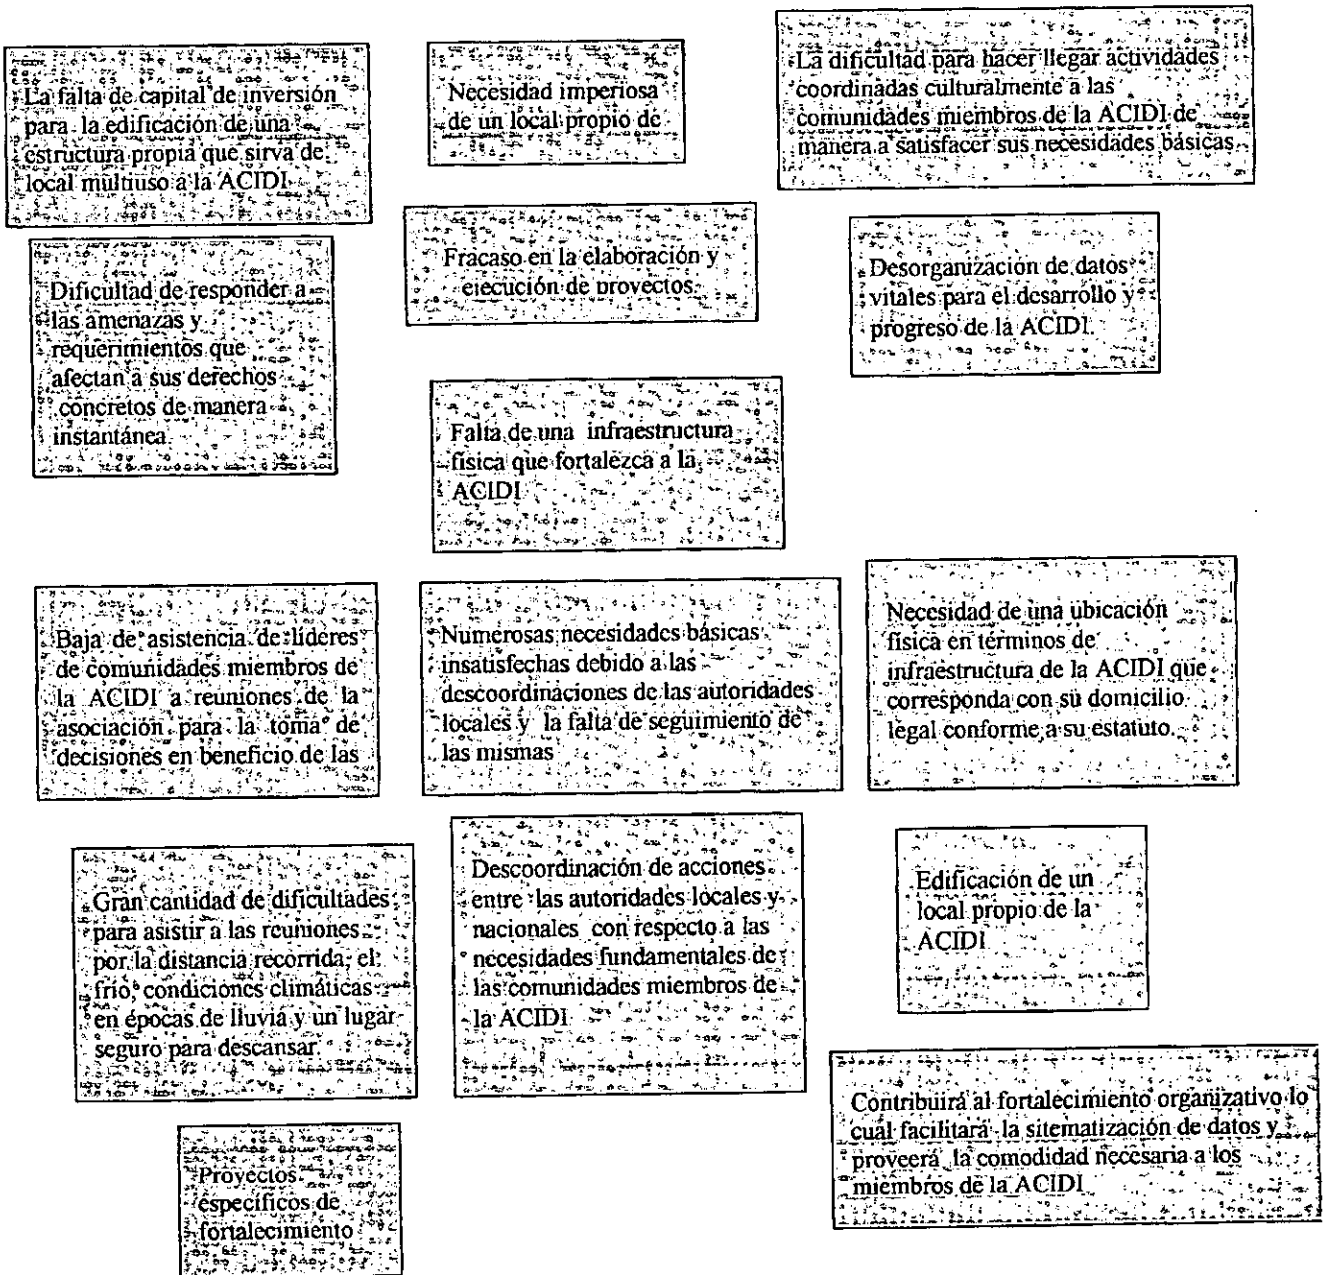 La falta de capital de inversión
para la edificación de una
estructura propia que sirva de
local multiuso a la ACIDI
Necesidad imperiosa
de un local propio de
La dificultad para hacer llegar actividades
coordinadas culturalmente a las
comunidades miembros de la ACIDI de
manera a satisfacer sus necesidades básicas
Dificultad de responder a
las amenazas y
requerimientos que
afectan a sus derechos
concretos de manera
instantánea.
Fracaso en la elaboración y
ejecución de proyectos.
Desorganización de datos
vitales para el desarrollo y
progreso de la ACIDI.
Falta de una infraestructura
física que fortalezca a la
ACIDI
Baja de asistencia de líderes
de comunidades miembros de
la ACIDI a reuniones de la
asociación para la toma de
decisiones en beneficio de las
Numerosas necesidades básicas
insatisfechas debido a las
descoordinaciones de las autoridades
locales y la falta de seguimiento de
las mismas
Necesidad de una ubicación
física en términos de
infraestructura de la ACIDI que
corresponda con su domicilio
legal conforme a su estatuto.
Gran cantidad de dificultades
para asistir a las reuniones
por la distancia recorrida, el
frío, condiciones climáticas
en épocas de lluvia y un lugar
seguro para descansar.
Descoordinación de acciones
entre las autoridades locales y
nacionales con respecto a las
necesidades fundamentales de
las comunidades miembros de
la ACIDI
Edificación de un
local propio de la
ACIDI
Contribuirá al fortalecimiento organizativo lo
cuál facilitará la sitematización de datos y
proveerá la comodidad necesaria a los
miembros de la ACIDI
Proyectos
específicos de
fortalecimiento